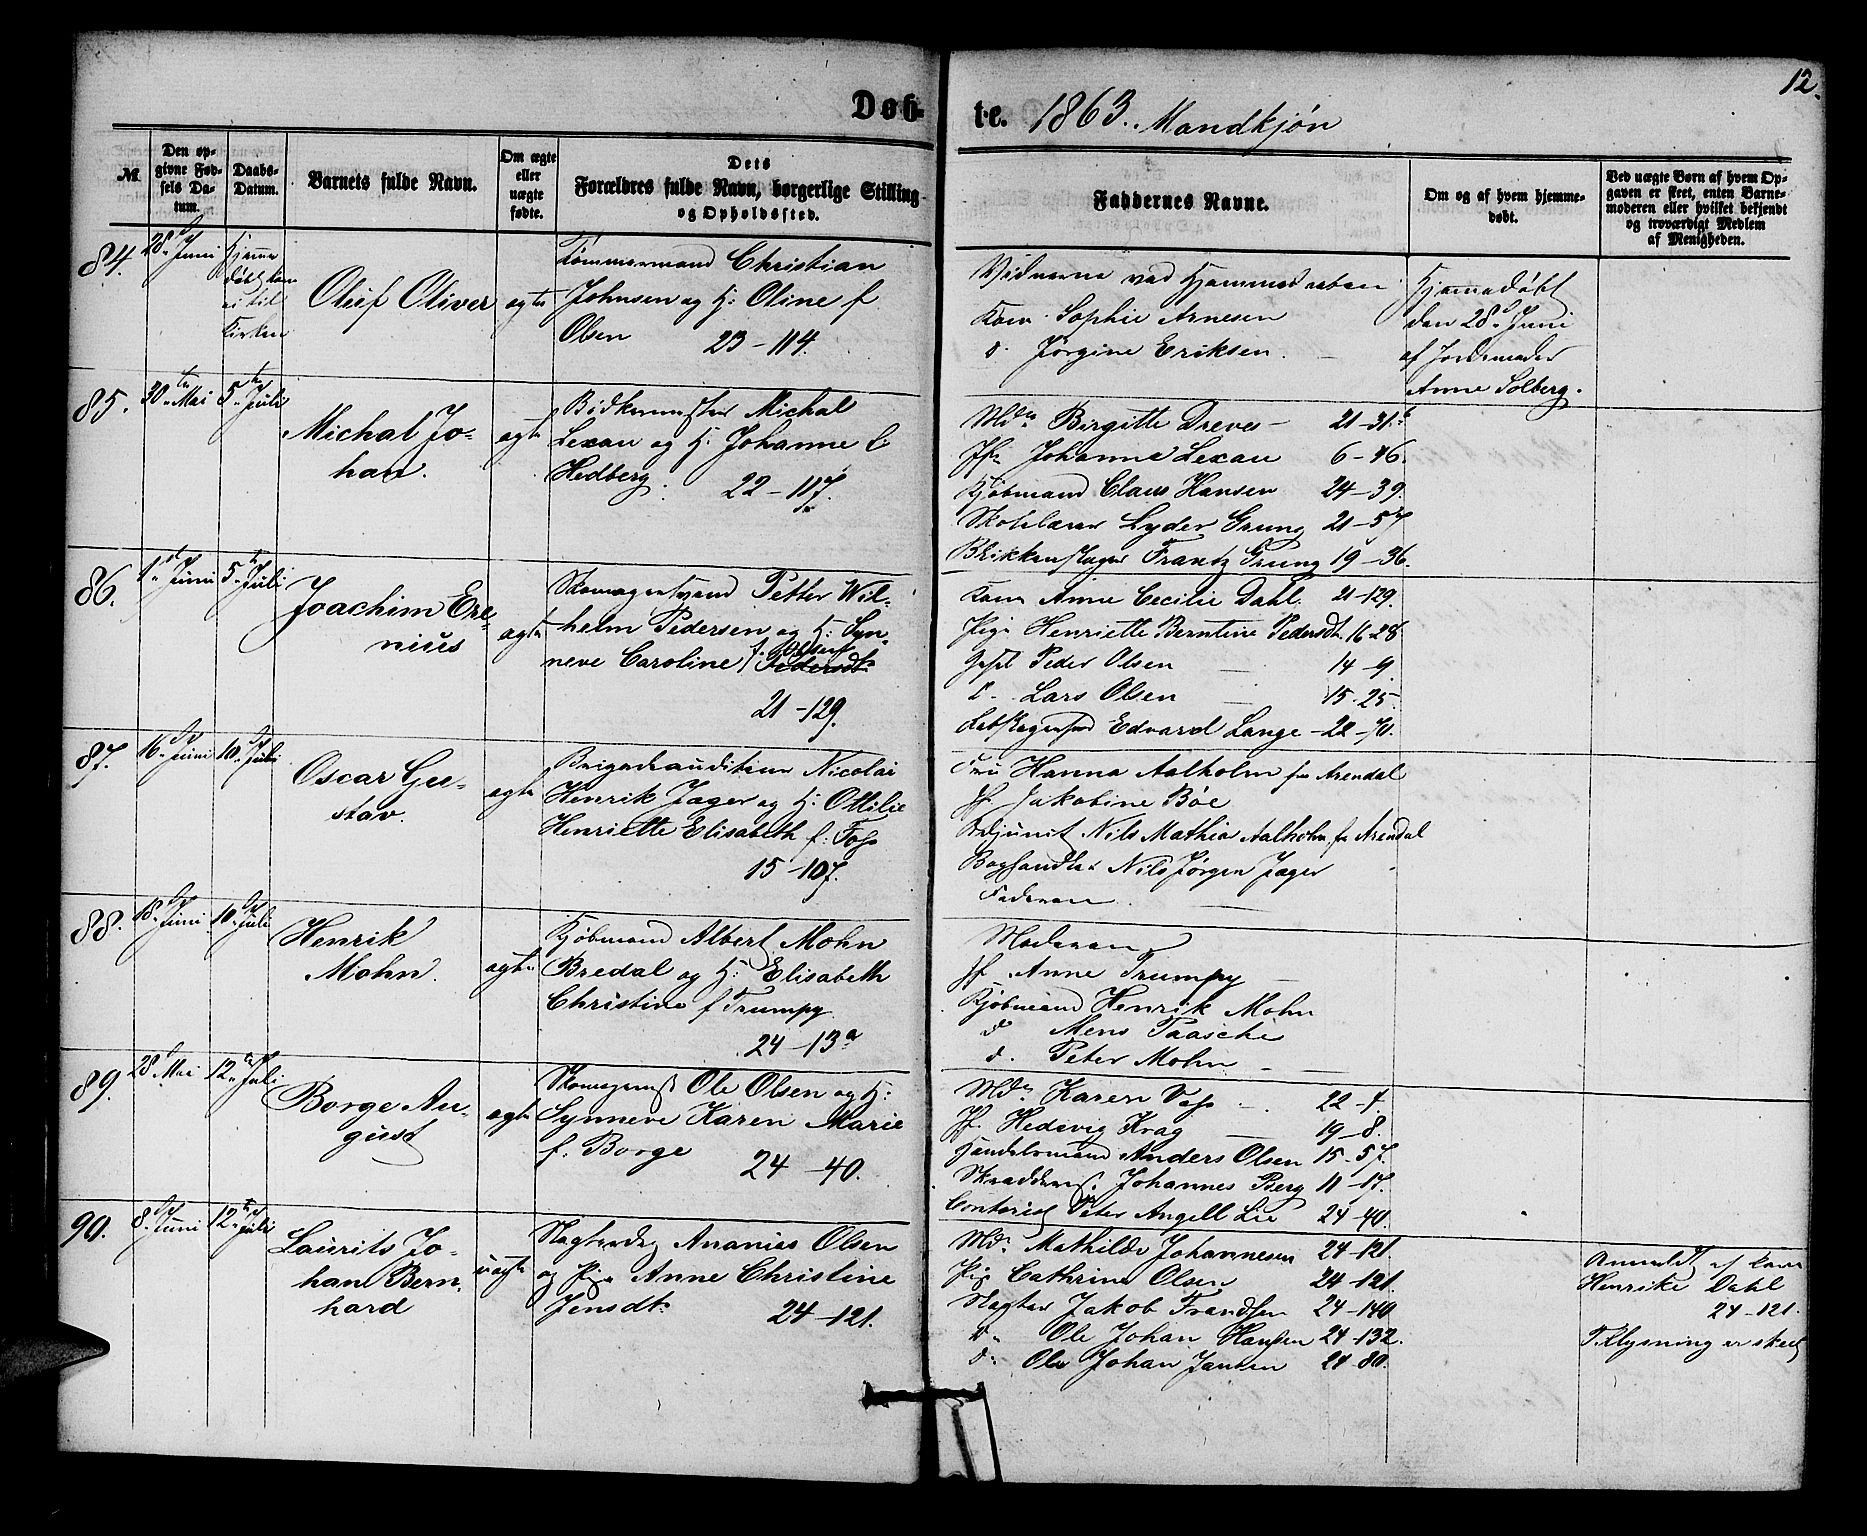 12.
Døb-
te. 1863. Mandkjøn
№.
Den op-
givne Fød-
sels Da-
tum.
Daabs-
Datum.
Barnets fulde Navn.
Om ægte
eller
uægte
fødte.
Dets
Forældres fulde Navn, borgerlige Stilling
og Opholdssted.
Faddernes Navne.
Om og af hvem hjemme-
døbt.
Ved uægte Børn af hvem Op-
gaven er skeet, enten Barne-
moderen eller hvilket bekjendt
og troværdigt Medlem
af Menigheden.
84.
28. Juni
Hjemme
døbt kom
ei til
Kirken
Oluf Oliver
ægte
Tømmermand Christian
Johnsen og H: Oline f
Olsen 23-114.
Vidnerne ved Hjemmedaaben
Kone Sophie Arnesen
d. Jørgine Eriksen.
Hjemmedøbt
den 28d Juni
af Jordemoder
Anne Solberg.
85.
30te Mai
5te Juli
Michal Jo-
han.
ægte
Bødkermester Michal
Lexau og H: Johanne f:
Hedberg. 22-117.
Mdm Birgitte Dreves 21-31.
Jfr Johanna Lexau 6-46.
Kjøbmand Claus Hansen 24-39.
Skolelærer Lyder Grung 21-57
Blikkenslager Frantz Grung 19-36.
86.
1st Juni
5te Juli
Joachim Ere-
nius
ægte
Skomagersvend Petter Wil-
helm Pedersen og H: Syn-
neve Caroline f. Olsen Pedersdt:
21-129.
Kone Anne Cecilie Dahl. 21-129.
Pige Henriette Berntine Pedersdt. 16-28
Gesel Peder Olsen 14-9.
d. Lars Olsen 15-25.
Edvard Lange 22-70.
87.
16. Juni
10. Juli
Oscar Gu-
stav.
ægte
Brigadeauditeur Nicolai
Henrik Jæger og H: Ottilie
Henriette Elisabeth f: Foss
15-107.
Fru Hanna Aalholm fra Arendal
Jf. Jakobine Bøe
Adjunct Nils Mathias Aalholm fr Arendal
Boghandler Nils Jørgen Jæger
Faderen.
88.
18. Juni
10. Juli
Henrik
Mohn.
ægte
Kjøbmand Albert Mohn
Bredal og H: Elisabeth
Christine f Trumpy.
24-13a
Moderen
Jf. Anne Trumpy
Kjøbmand Henrik Mohn
d Mens Paasche
d. Peter Mohn
89.
28. Mai
12te Juli
Borge Au-
gust
ægte
Skomagermst Ole Olsen og H:
Synneve Karen Marie
f. Borge 24-40.
Mdm Karen Voss 22-7.
Jf. Hedevig Krag 19-8.
Handelsmand Anders Olsen 15-57.
Skrædderms. Johannes Berg 11-17.
Contorist Peter Angell Lie 24-40.
90.
8. Juni
12te Juli
Laurits Jo-
han Bern-
hard
uægte
Slagterdg Ananias Olsen
og Pige Anne Christine
Jensdt: 24-121.
Md. Mathilde Johannesen 24-121.
Pig Cathrine Olsen 24-121.
Slagter Jakob Frandsen 24-140
d. Ole Johan Hansen 24-132.
d. Ole Johan Jansen 24-80.
Anmeldt af Kone
Henrike Dahl
24-121.
Tillysning er skeet